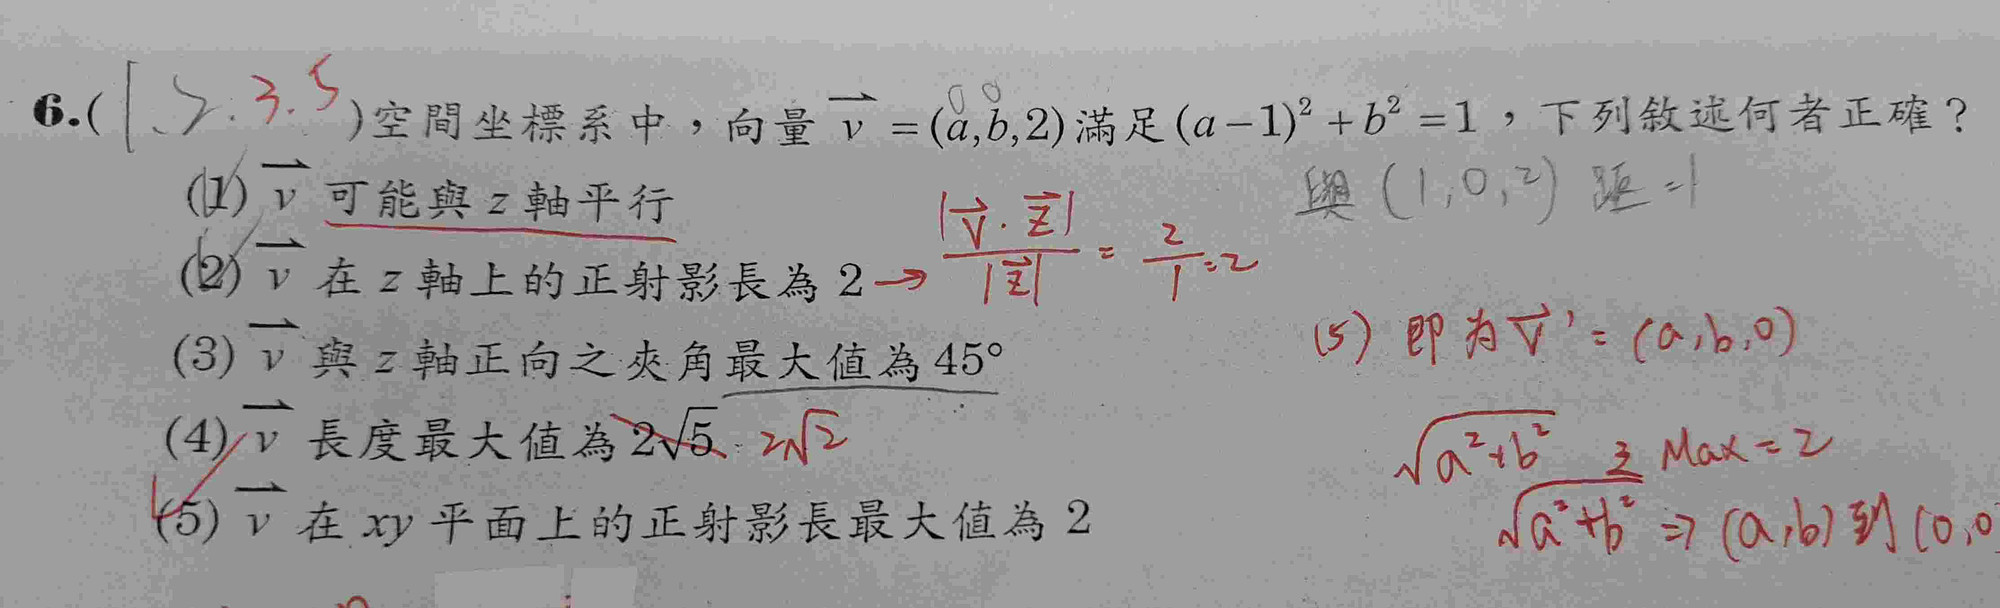 6.(1.2.3.5)空間坐標系中，向量 v⃗ =(a,b,2)滿足(a−1)²+b²=1，下列敘述何者正確？
0 0
與(1,0,2)距=1
(1) v⃗ 可能與 z 軸平行
(2) v⃗ 在 z 軸上的正射影長為 2 → |v⃗·z⃗|/|z⃗| = 2/1 = 2
(3) v⃗ 與 z 軸正向之夾角最大值為 45°
(5) 即為 v⃗' = (a,b,0)
(4) v⃗ 長度最大值為 2√5 2√2
√a²+b² 之 Max = 2
(5) v⃗ 在 xy 平面上的正射影長最大值為 2
√a²+b² ⇒ (a,b) 到 (0,0